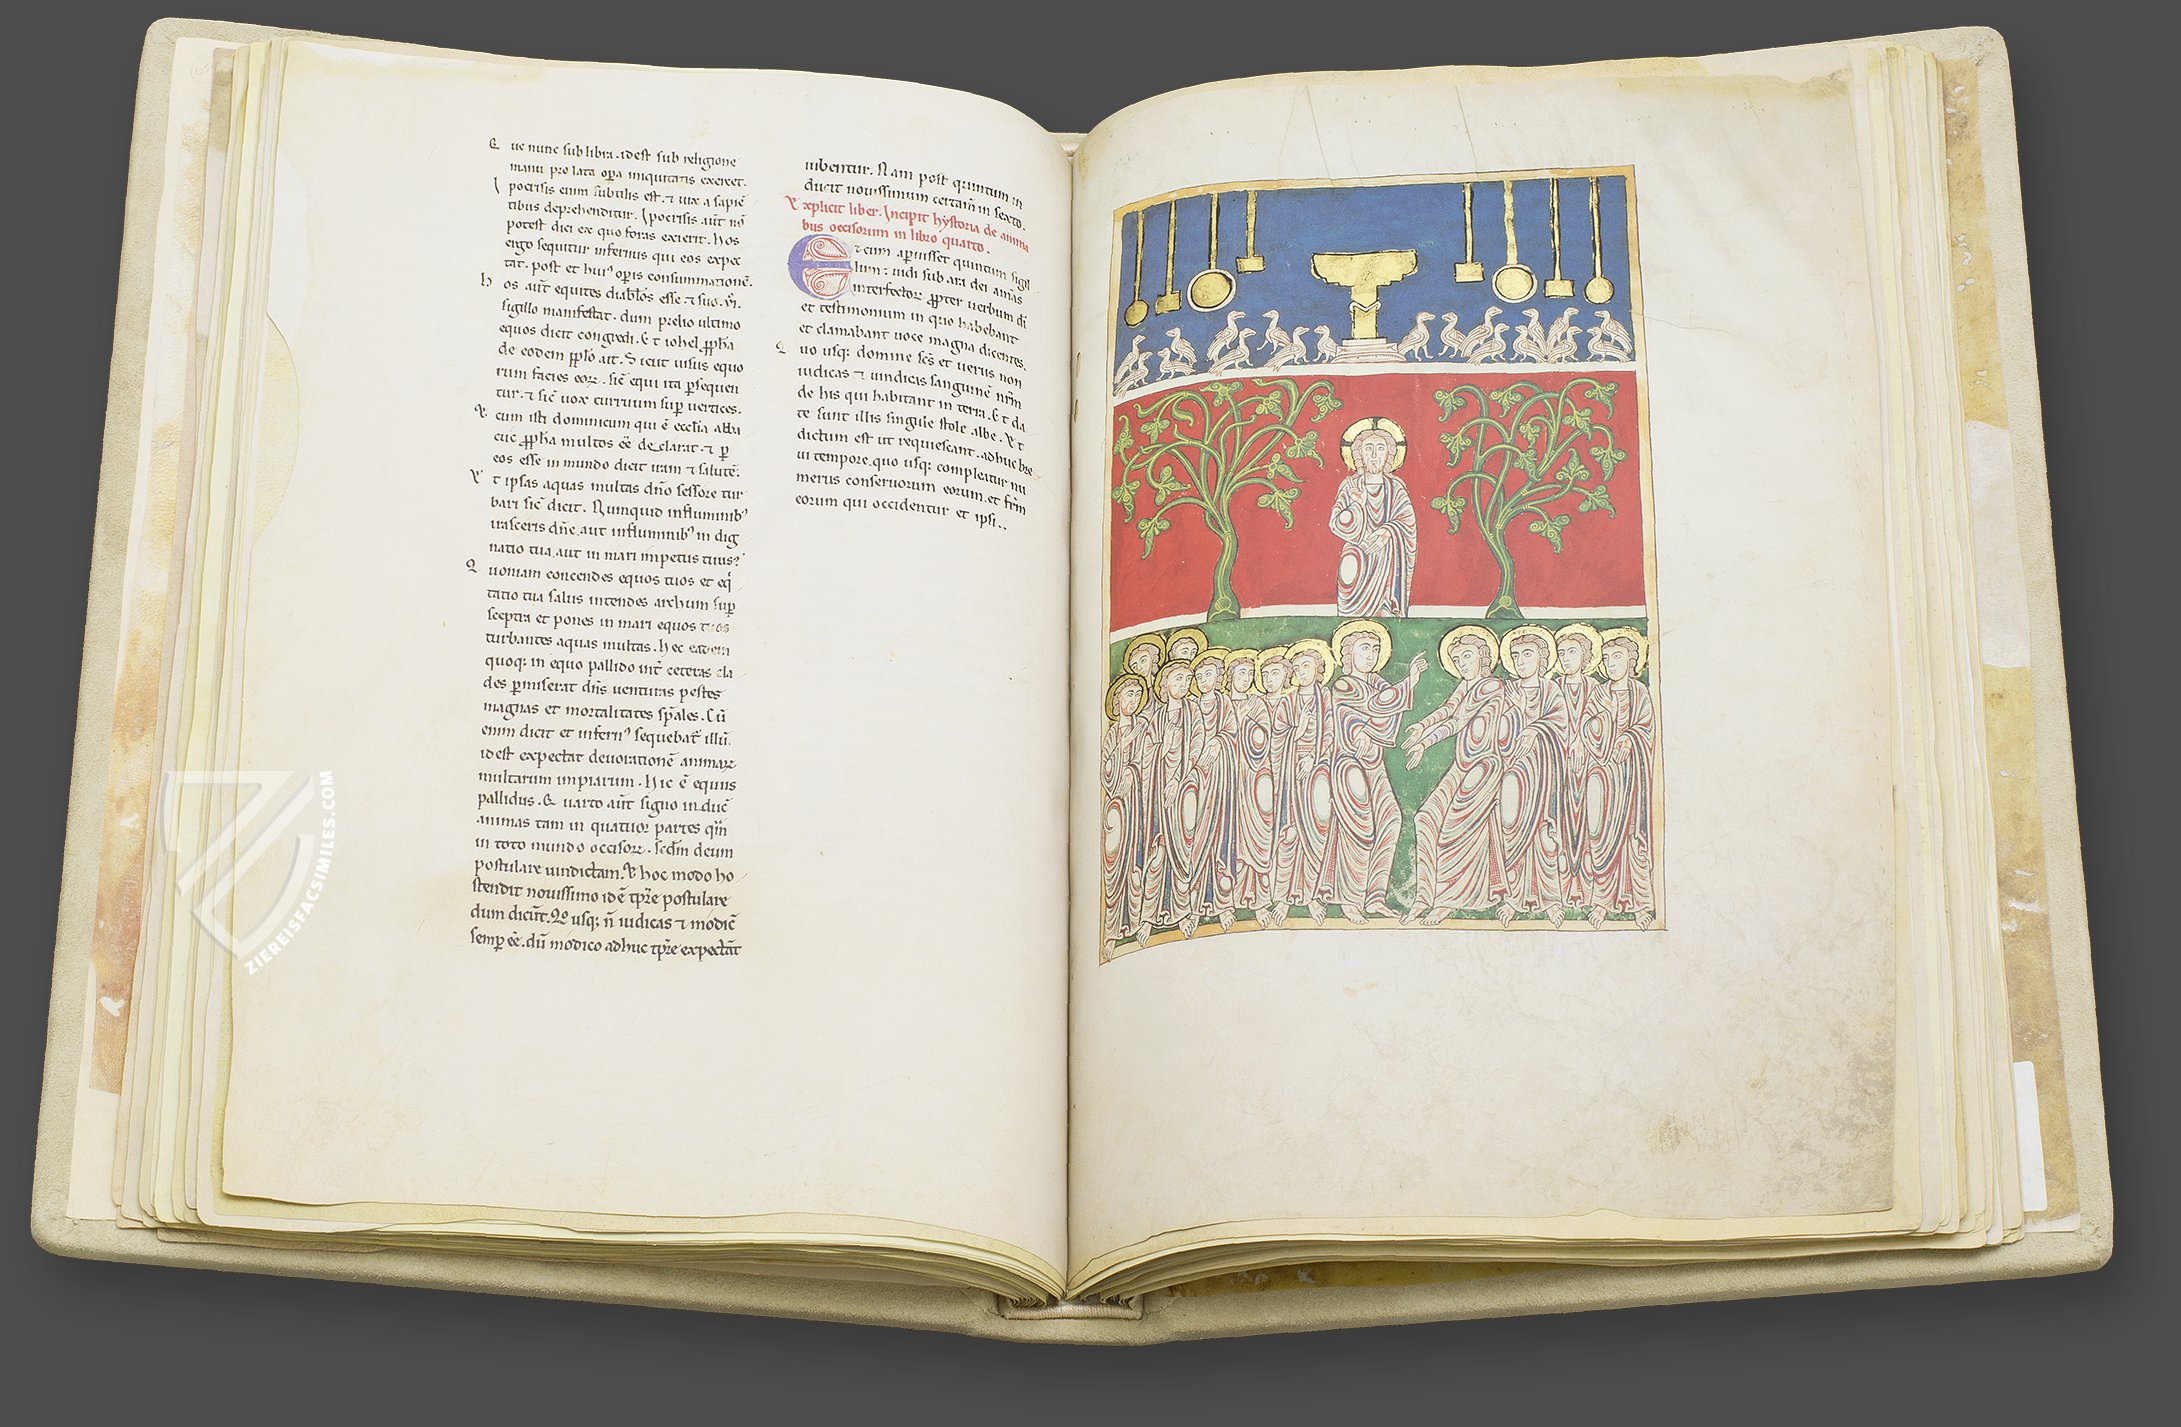 Q ue nunc sub libra. idest sub religione
manu prolata opa iniquitatis exercet.
I pocrisis enim subtilis est. ⁊ uix a sapiē
tibus deprehenditur. Ipocrisis aut̄ nō
potest dici ex quo foras exierit. Hos
ergo sequitur infernus qui eos expec
tat. post et huiꝰ opis consummationē.
h os aut̄ equites diabolos esse ⁊ suo. vi.
sigillo manifestat. dum prelio ultimo
equos dicit congredi. Et iohel ꝓpha
de eodem pplo ait. Sicut uisus equo
rum facies eoꝝ. sic̄ equi ita psequen
tur. ⁊ sic̄ uox curruum sup uertices.
cum isti dominicum qui ē ecclia abba
cuc ꝓpha multos eē declarat ⁊ p
eos esse in mundo dicit uiam ⁊ salutē.
E t ipsas aquas multas dn̄o sessore tur
bari sic̄ dicit. Numquid influminibꝰ
irasceris dn̄e. aut influminibꝰ in dig
natio tua. aut in mari impetus tuus?
Q uoniam concendes equos tuos et eq̄
tatio tua salus intendes archum sup
sceptra et pones in mari equos tuos
turbantes aquas multas. Hec eadem
quoq; in equo pallido int̄ ceteras cla
des pmiserat dn̄s uenturas pestes
magnas et mortalitates sp̄ales. Cū
enim dicit et infernꝰ sequebat̄ illū.
idest expectat deuorationē animaꝝ
multarum impiarum. Hic ē equus
pallidus. Quarto aut̄ signo induc̄
animas tam in quatuor partes qm̄
in toto mundo occisoꝝ. sedm̄ deum
postulare uindictam. Et hoc modo ho
stendit nouissimo idē tp̄re postulare
dum dicūt. Qo usq; n̄ iudicas ⁊ modic̄
semp eē. dū modico adhuc tp̄re expectāt
iubentur. Nam post quintum in
ducit nouissimum certam̄ in sexto.
Explicit liber. Incipit hystoria de anima
bus occisorum in libro quarto.
E t cum aperuisset quintum sigil
lum: uidi sub ara dei aīas
interfectoꝝ ꝓpter uerbum dī
et testimonium in quo habebant
et clamabant uoce magna dicentes.
Q uo usq; domine scs̄ et uerus non
iudicas ⁊ uindicas sanguinē nr̄m
de his qui habitant in terra. Et da
te sunt illis singule stole albe. Et
dictum est ut requiescant. adhuc bre
ui tempore. quo usq; compleatur nu
merus conseruorum eorum. et fr̄m
eorum qui occidentur et ipsi..
ZIEREISFACSIMILES.COM